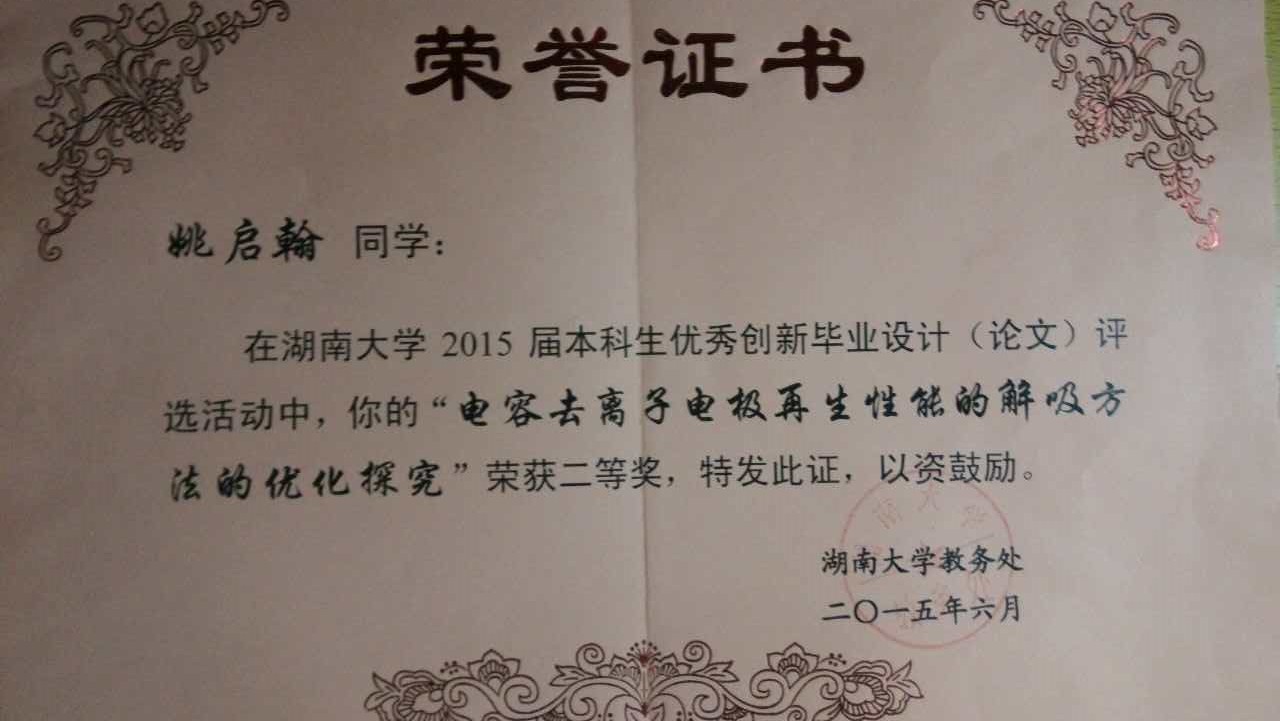 荣誉证书
姚启翰 同学：
在湖南大学 2015 届本科生优秀创新毕业设计（论文）评
选活动中，你的“电容去离子电极再生性能的解吸方
法的优化探究”荣获二等奖，特发此证，以资鼓励。
湖南大学教务处
二〇一五年六月